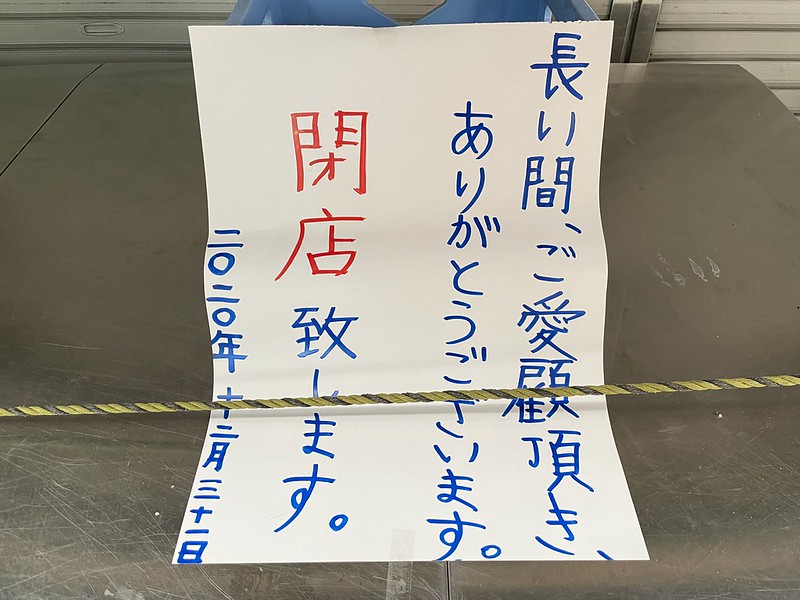 長い間、ご愛顧頂き、
ありがとうございます。
閉店致します。
二〇二〇年十二月三十一日